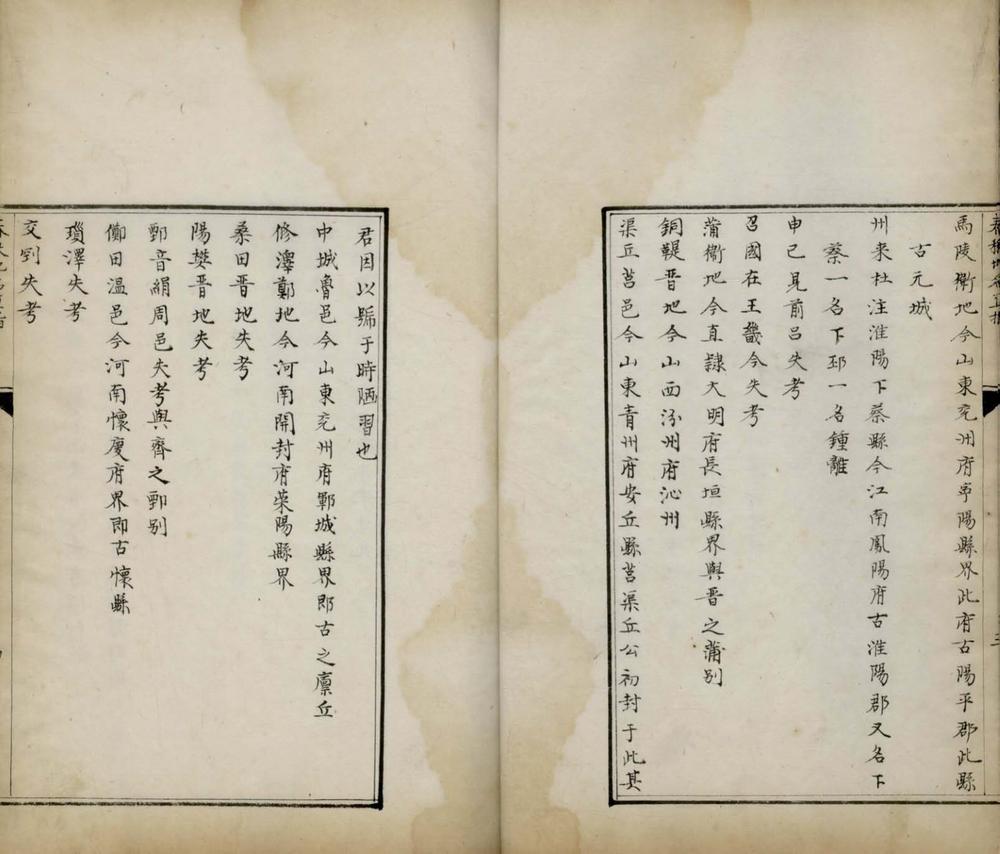 馬陵衛地今山東兖州府寕陽縣界此府古陽平郡此縣
古元城
州来杜注淮陽下蔡縣今江南鳳陽府古淮陽郡又名下
蔡一名下邳一名鍾離
申已見前吕失考
召國在王畿今失考
蒲衛地今直隸大明府長垣縣界與晋之蒲别
銅鞮晋地今山西汾州府沁州
渠丘莒邑今山東青州府安丘縣莒渠丘公初封于此其
君因以號于時陋習也
中城魯邑今山東兖州府鄆城縣界即古之廪丘
修澤鄭地今河南開封府荥陽縣界
桑田晋地失考
陽樊晋地失考
鄄音絹周邑失考與齊之鄄别
鄇田温邑今河南懷慶府界即古懷縣
瑣澤失考
交剛失考